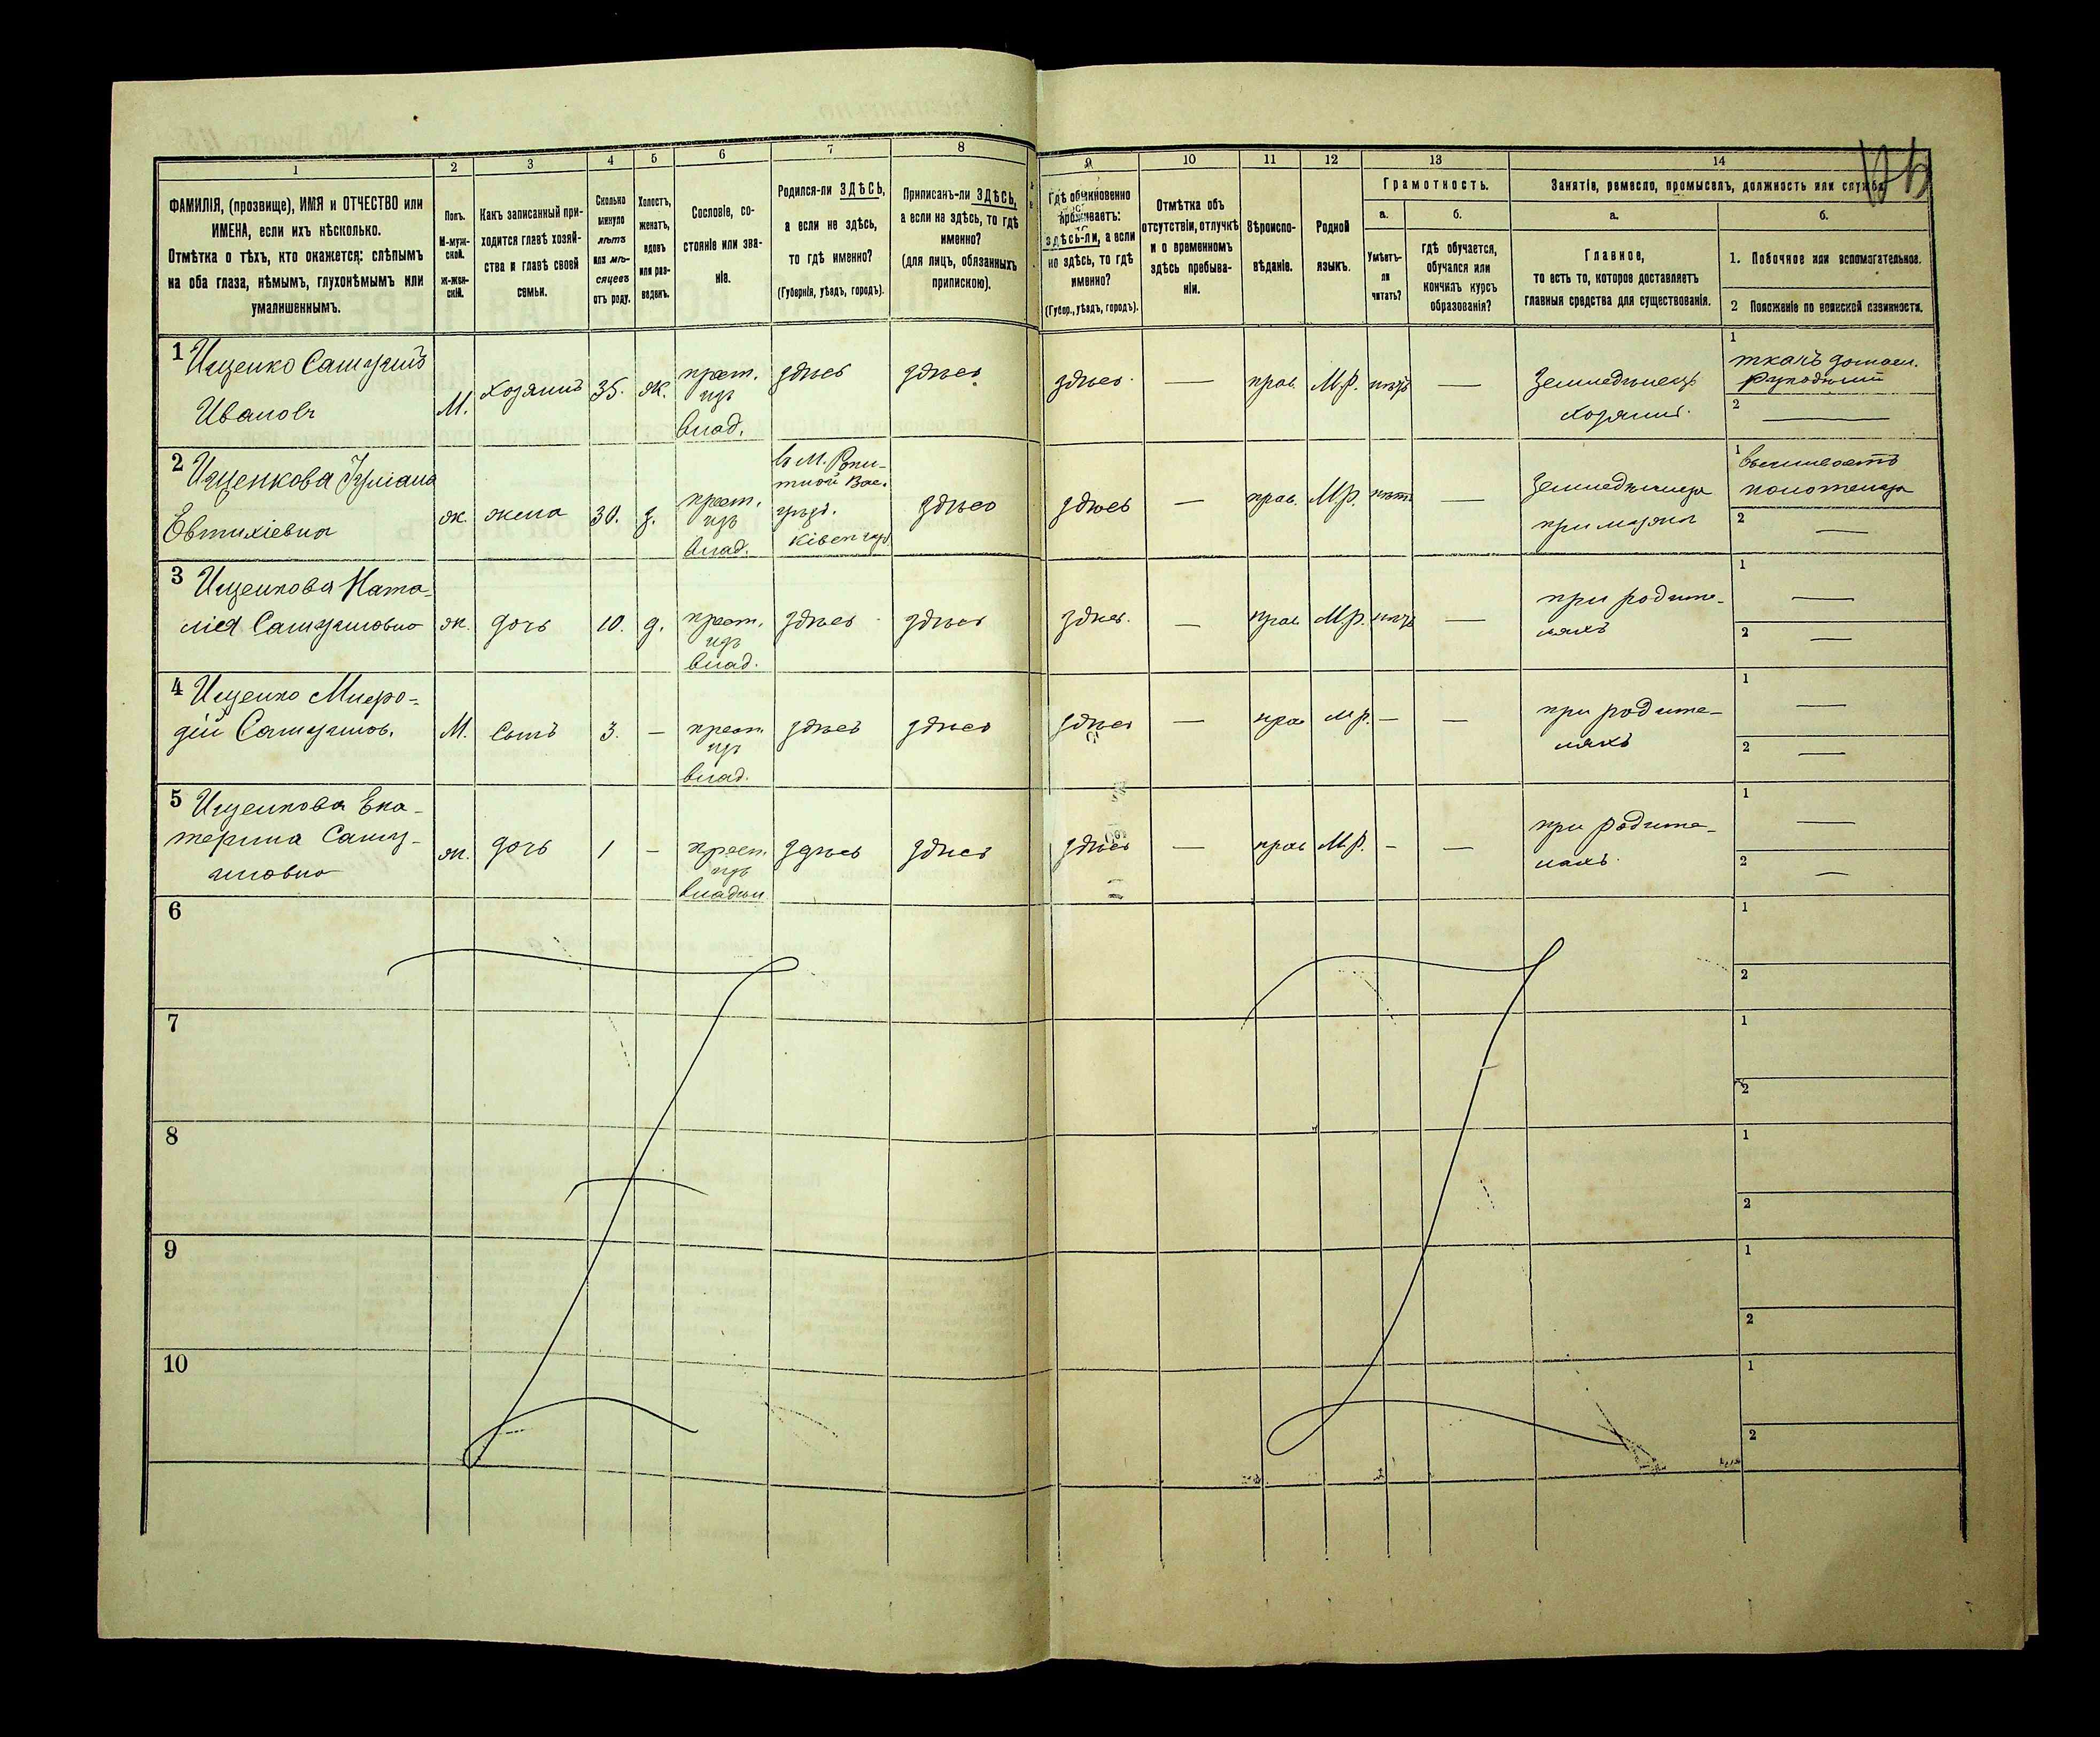 1
2
3
4
5
6
7
8
ФАМИЛІЯ, (прозвище), ИМЯ и ОТЧЕСТВО или
ИМЕНА, если ихъ нѣсколько.
Отмѣтка о тѣхъ, кто окажется: слѣпымъ
на оба глаза, нѣмымъ, глухонѣмымъ или
умалишеннымъ.
Полъ.
М-муж-
ской.
ж-жен-
скій.
Какъ записанный при-
ходится главѣ хозяй-
ства и главѣ своей
семьи.
Сколько
минуло
лѣтъ
или мѣ-
сяцевъ
отъ роду.
Холостъ,
женатъ,
вдовъ
или раз-
веденъ.
Сословіе, со-
стояніе или зва-
ніе.
Родился-ли ЗДѢСЬ,
а если не здѣсь,
то гдѣ именно?
(Губернія, уѣздъ, городъ).
Приписанъ-ли ЗДѢСЬ,
а если не здѣсь, то гдѣ
именно?
(для лицъ, обязанныхъ
припискою).
9
10
11
12
13
14
Гдѣ обыкновенно
проживаетъ:
здѣсь-ли, а если
не здѣсь, то гдѣ
именно?
(Губер., уѣздъ, городъ).
Отмѣтка объ
отсутствіи, отлучкѣ
и о временномъ
здѣсь пребыва-
ніи.
Вѣроиспо-
вѣданіе.
Родной
языкъ.
Грамотность.
а.
б.
Умѣетъ-
ли
читать?
гдѣ обучается,
обучался или
кончилъ курсъ
образованія?
Занятіе, ремесло, промыселъ, должность или служба
а.
б.
Главное,
то есть то, которое доставляетъ
главныя средства для существованія.
1. Побочное или вспомогательное.
2 Положеніе по воинской повинности.
1 Ищенко
Ивановъ
М.
хозяинъ
35.
ж.
крест.
изъ
влад.
здѣсь
здѣсь
здѣсь
—
прав.
М.р.
нѣтъ
—
Земледѣлецъ
хозяинъ.
1
ткачъ
2 —
2 Ищенкова
Евтихіевна
ж.
жена
30.
з.
крест.
изъ
влад.
въ м.
Вас.
уѣзд.
Кіев. губ.
здѣсь
здѣсь
—
прав.
М.р.
нѣтъ
—
при мужѣ
1
2 —
3 Ищенкова Ната-
лія
ж.
дочь
10.
д.
крест.
изъ
влад.
здѣсь
здѣсь
здѣсь.
—
прав
М.р.
нѣтъ
—
при родите-
ляхъ
1 —
2 —
4 Ищенко
М.
сынъ
3.
—
крест.
изъ
влад.
здѣсь
здѣсь
здѣсь
—
прав
м.р.
—
—
при родите-
ляхъ
1 —
2 —
5 Ищенкова Ека-
терина
ж.
дочь
1
—
крест.
изъ
здѣсь
здѣсь
здѣсь
—
прав
М.р.
—
—
при родите-
ляхъ.
1 —
2 —
6
1
2
7
1
2
8
1
2
9
1
2
10
1
2